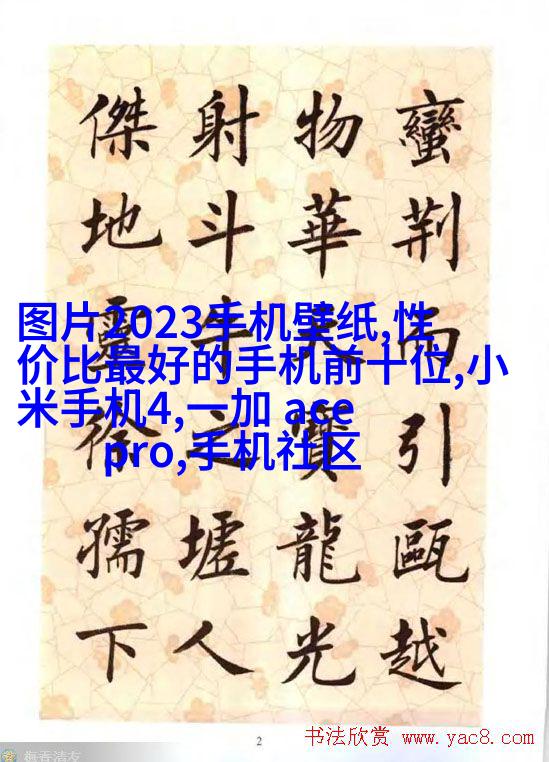 蠻荆而引甌越
物華天寶龍光
射斗牛之墟人
傑地靈徐孺下
图片2023手机壁纸,性
价比最好的手机前十位,小
米手机4,一加 ace
pro,手机社区
2
书法欣赏 www.yac8.com